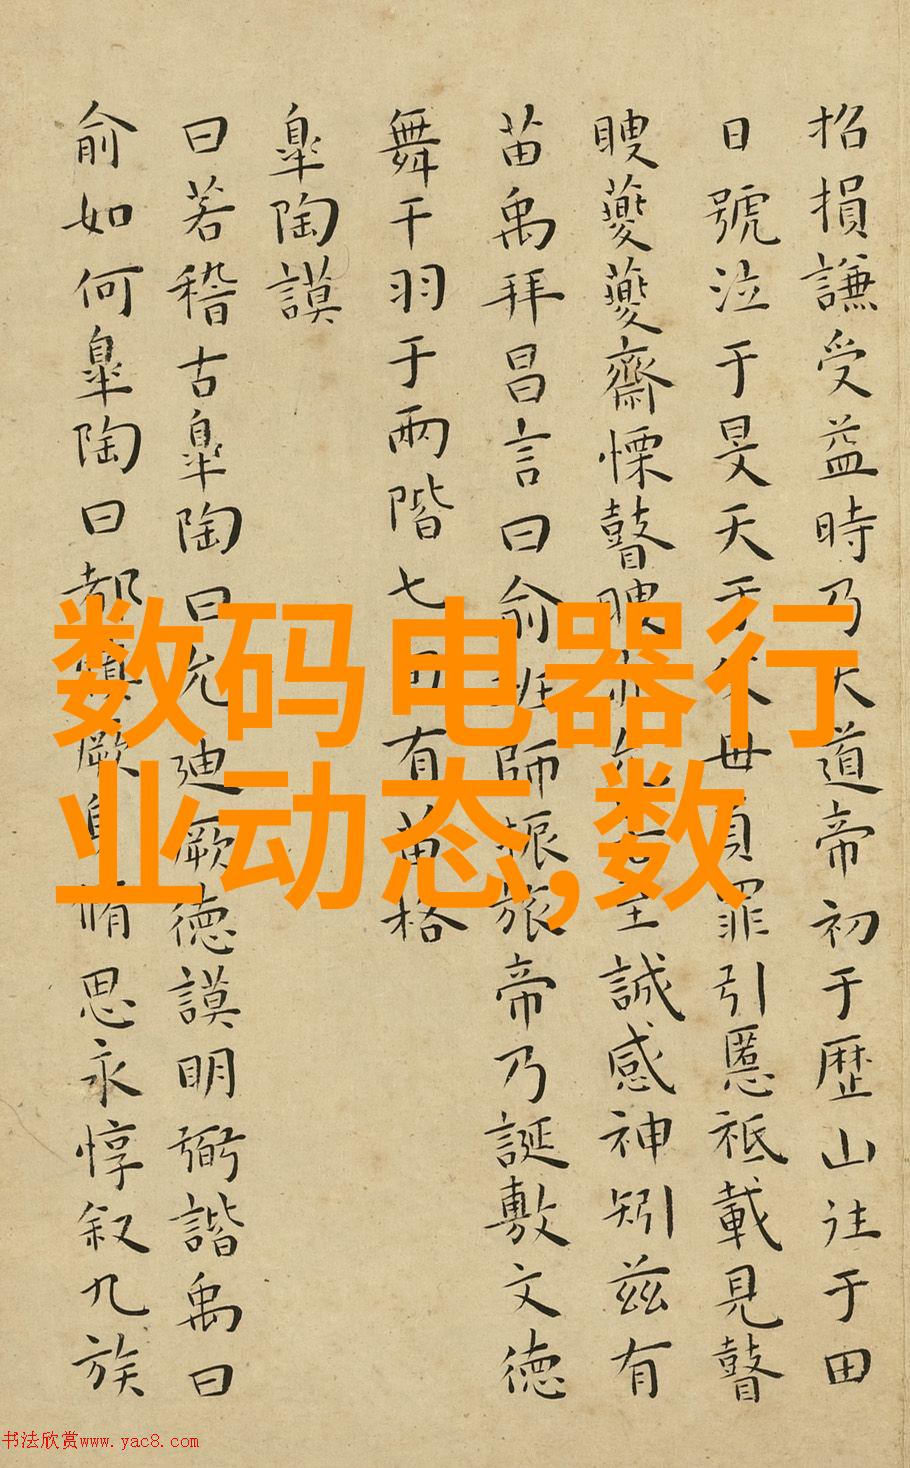 招損謙受益時乃天道帝初于歷山往于田
日號泣于旻天于父母負罪引慝祗載見瞽
瞍夔夔齋慄瞽瞍亦允若至誠感神矧茲有
苗禹拜昌言曰俞班師振旅帝乃誕敷文德
舞干羽于兩階七旬有苗格
皐陶謨
曰若稽古皐陶曰允迪厥德謨明弼諧禹曰
俞如何皐陶曰都慎厥身脩思永惇叙九族
数码电器行
业动态,数
书法欣赏www.yac8.com